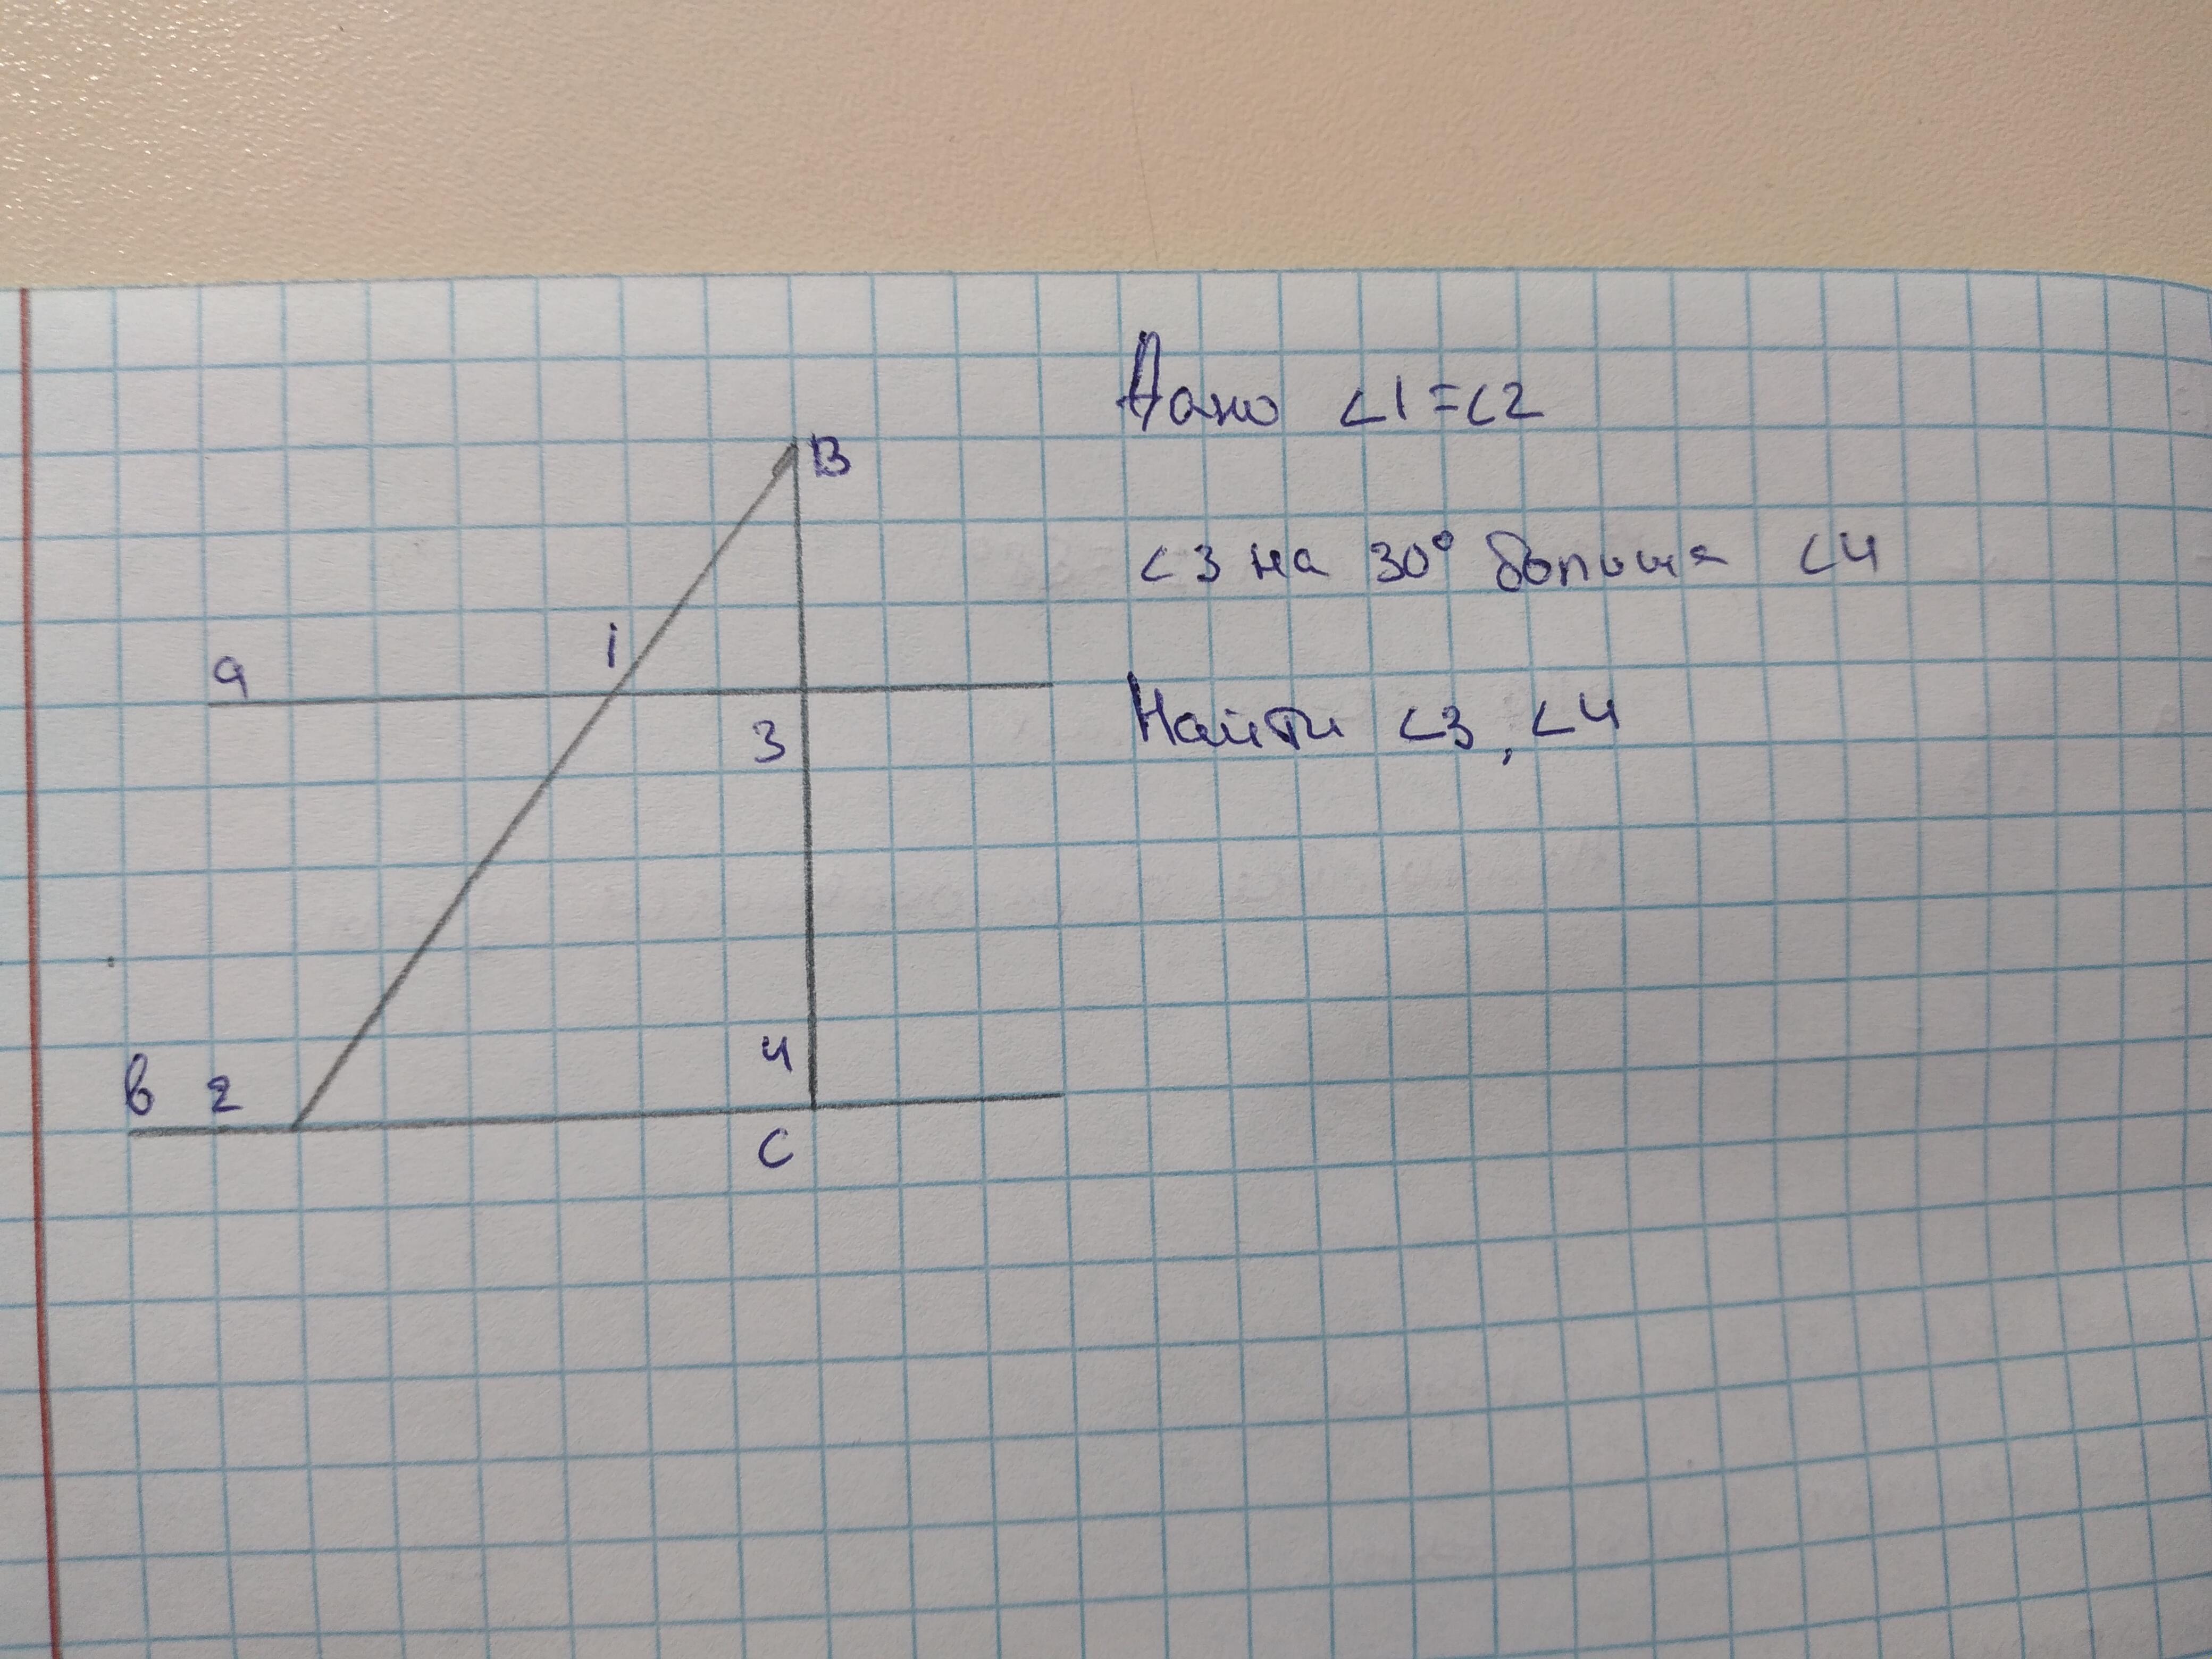 Дано ∠1=∠2
∠3 на 30° больше ∠4
Найти ∠3, ∠4
B
1
a
3
4
в 2
C